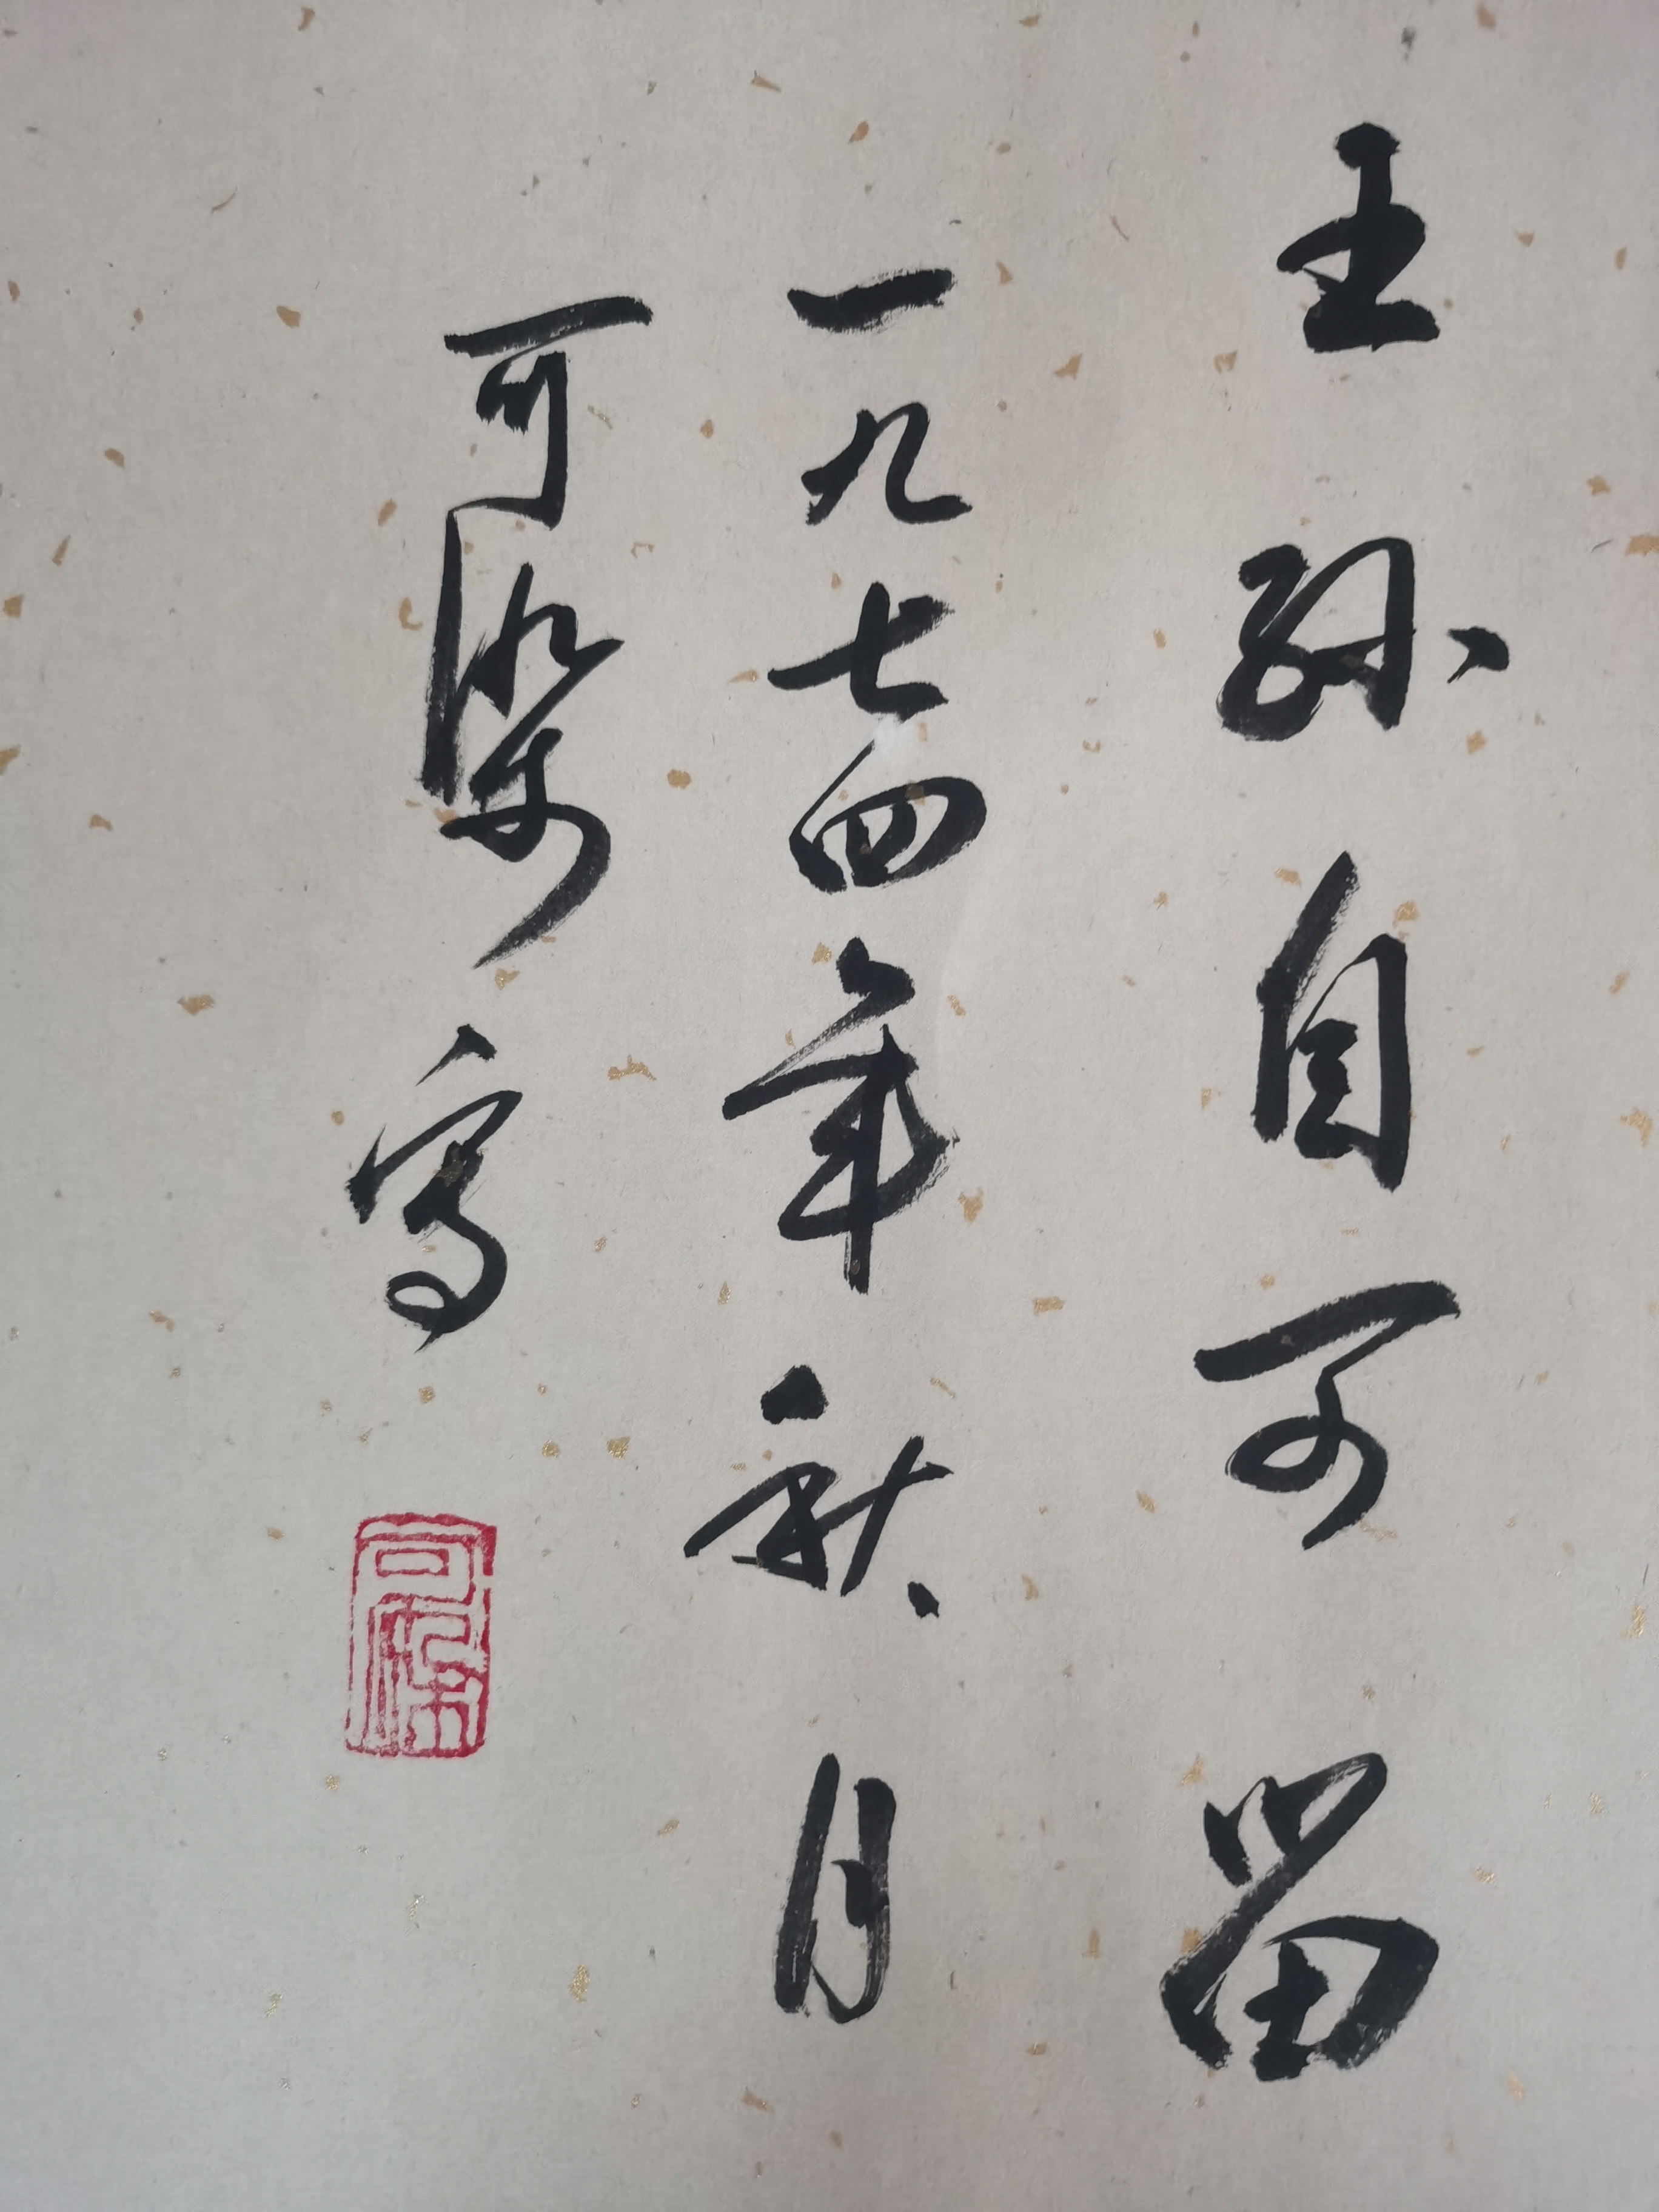 王孙自可留
一九七四年秋月
可染写
可染